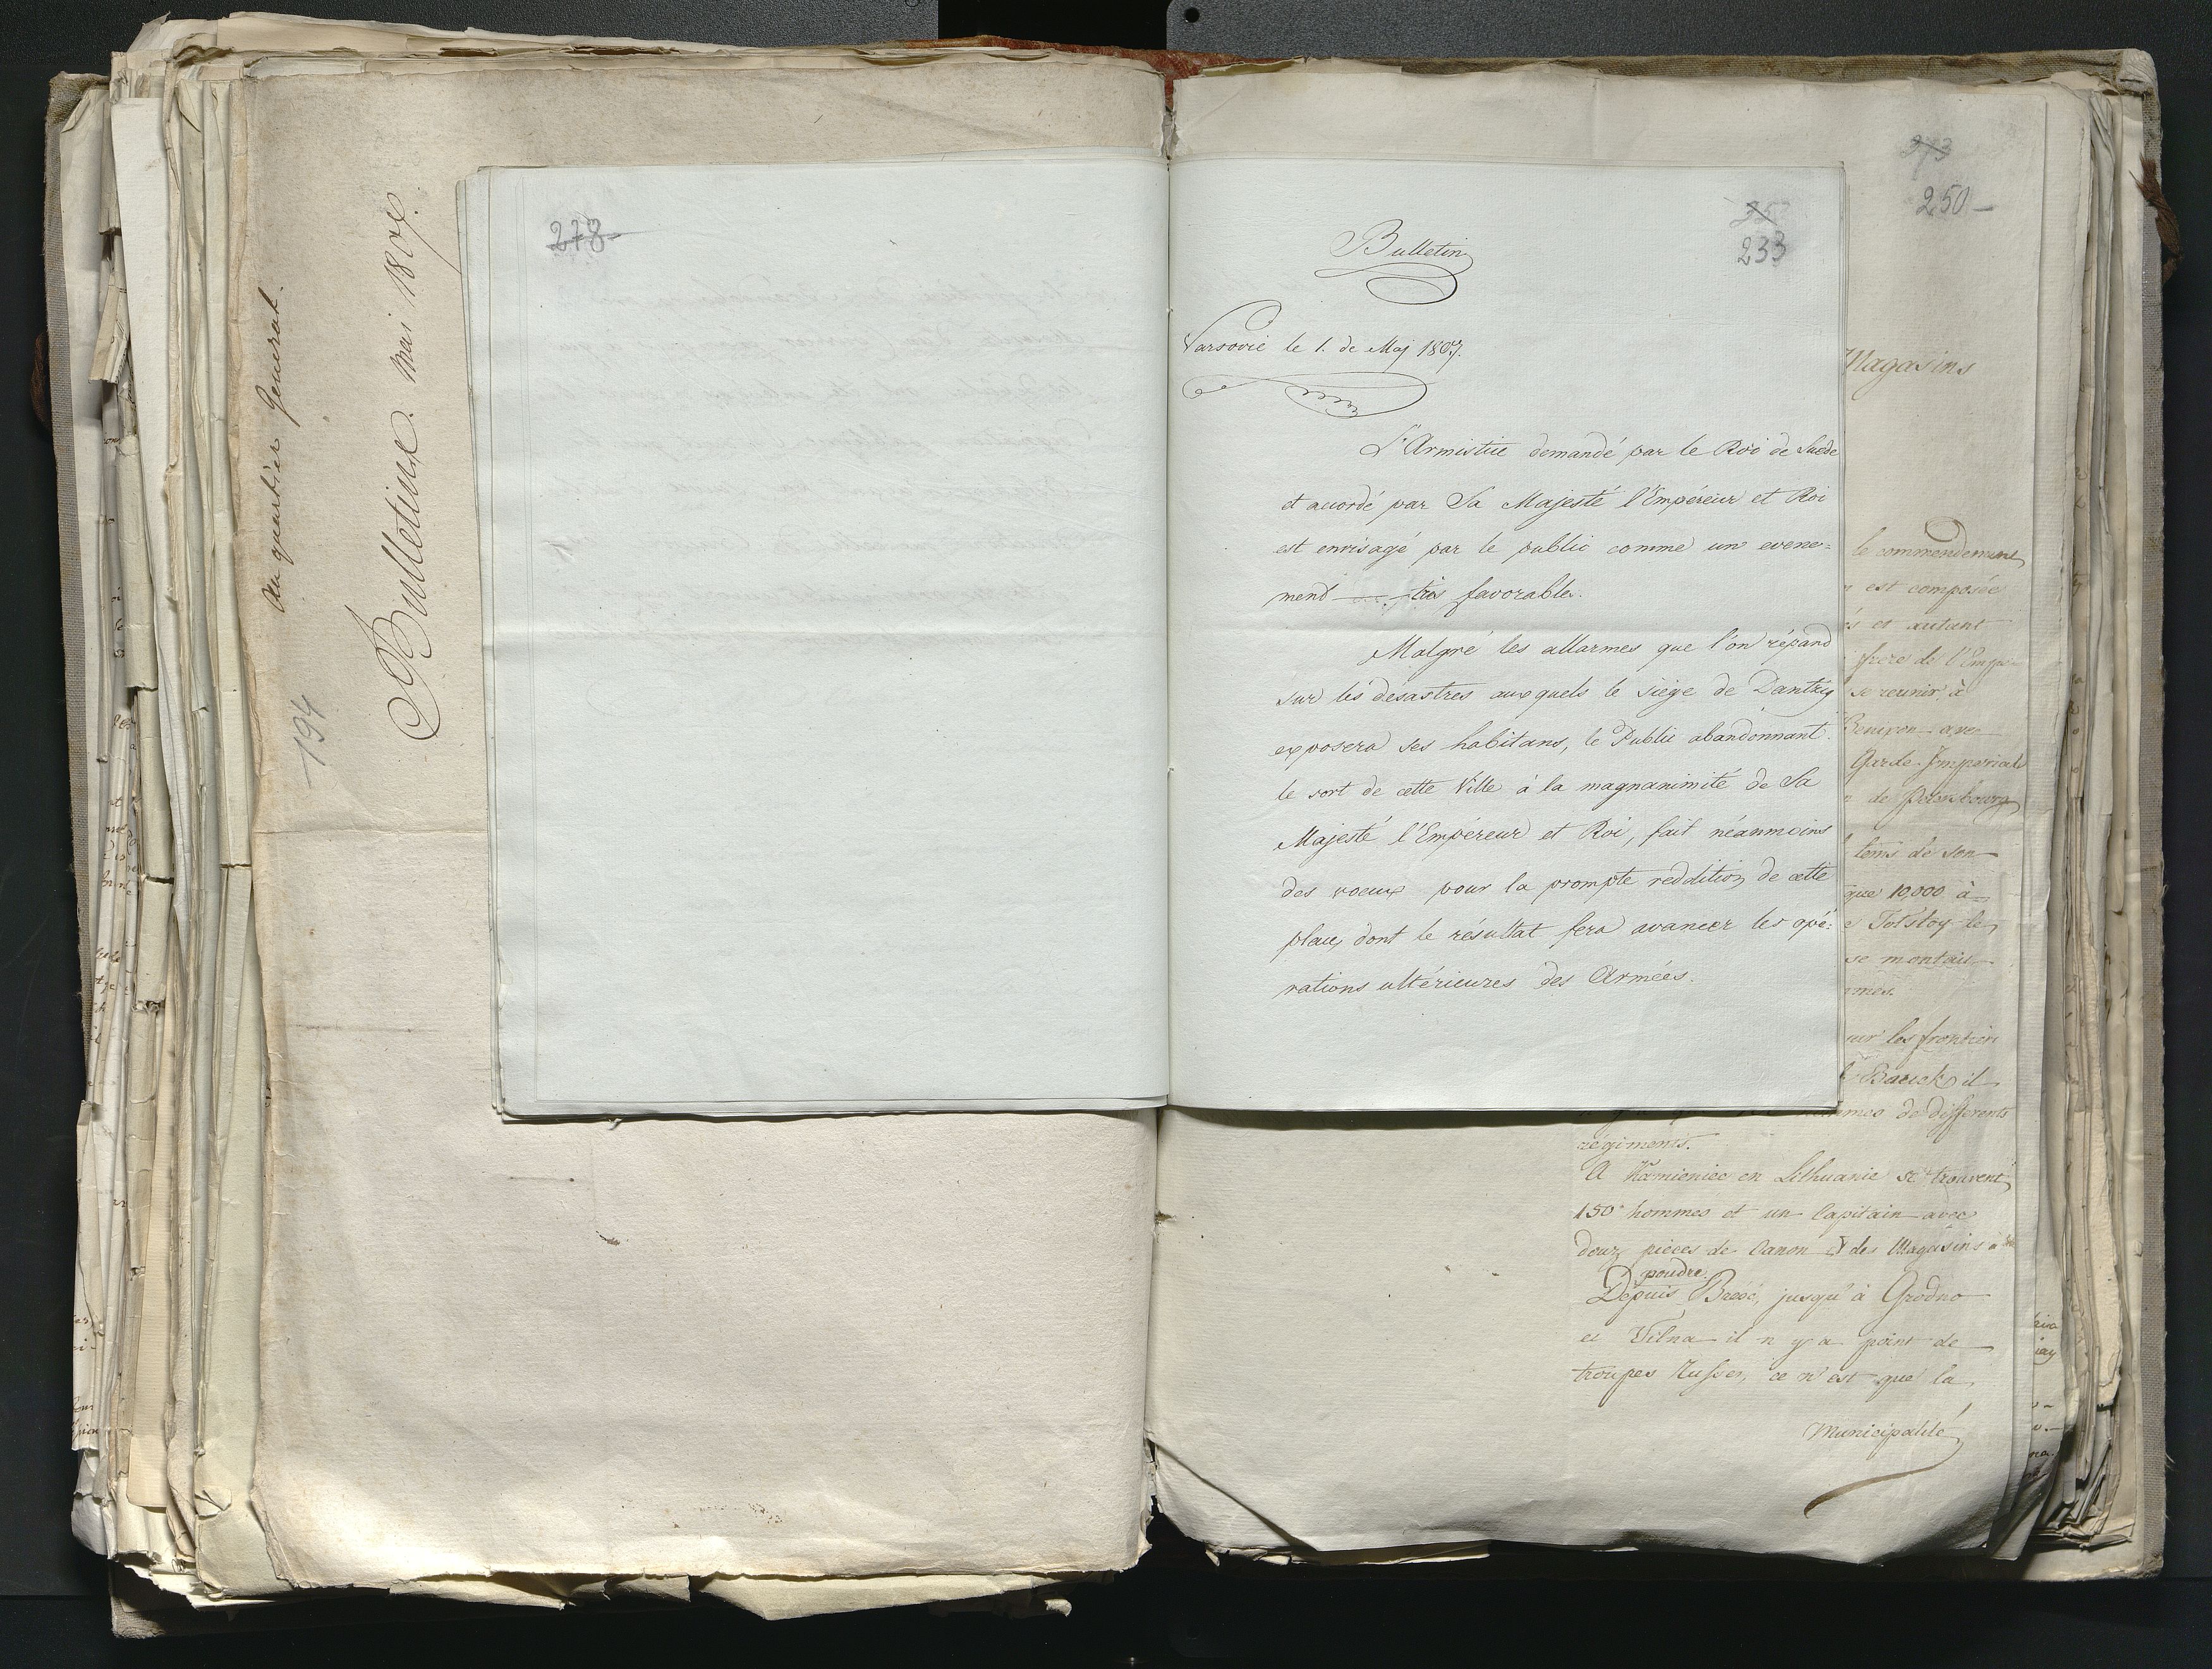 Au quartier General.
Bulletins. mai 1807.
194
278
233
Bulletin
Varsovie le 1. de Maj 1807.
L'Armistice demandé par le Roi de Suede
et accordé par Sa Majesté l'Empéreur et Roi
est envisagé par le public comme un evene=
ment très favorable.
Malgré les allarmes que l'on répand
sur les désastres auxquels le siége de Dantzig
exposera ses habitans, le Public abandonnant
le sort de cette Ville à la magnanimité de Sa
Majesté l'Empéreur et Roi, fait néanmoins
des voeux pour la prompte reddition de cette
place, dont le résultat fera avancer les opé=
rations ultérieures des Armées.
273
250
Magasins
le commendement
est composée
és et autant
frere de l'Empe-
se reunir à
avec
Garde Imperiale
de Petersbourg
tems de son
que 10,000 à
Tolstoy le
se montait
mes.
sur les frontieres
il
de differents
régiments.
A Kamieniec en Lithuanie se trouvent
150 hommes et un Capitain avec
deux pieces de Canon & des Magasins à
poudre.
Depuis Bresc, jusqu'à Grodno
et Vilna il n'y a point de
troupes Russes, ce n'est que la
Municipalité